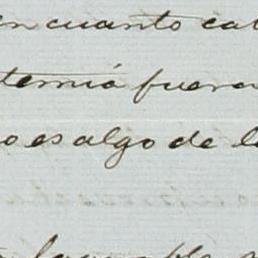 en cuanto ca
temia fuera
o es algo de l